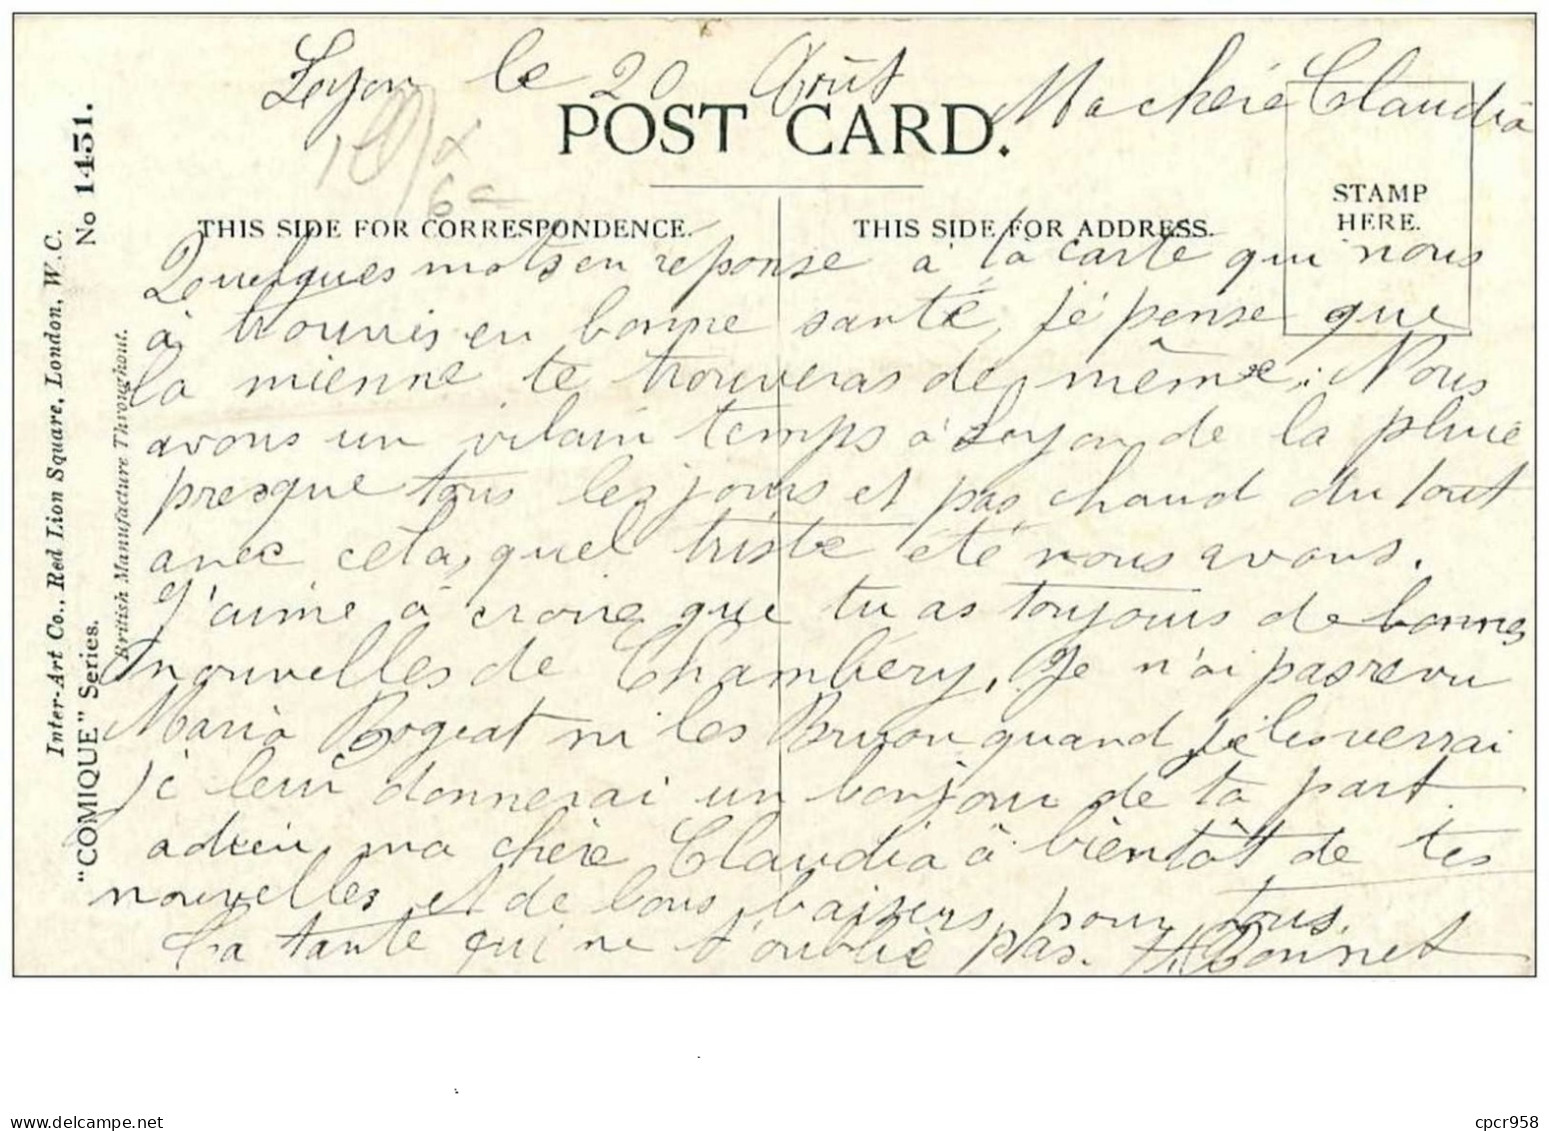 Lyon le 20 Août
Ma chère Claudia
POST CARD.
THIS SIDE FOR CORRESPONDENCE.
THIS SIDE FOR ADDRESS.
STAMP
HERE.
Quelques mots en réponse à ta carte qui nous
à trouvés en bonne santé, je pense que
la mienne te trouveras de même. Nous
avons un vilain temps à Lyon, de la pluie
presque tous les jours et pas chaud du tout
avec cela, quel triste été nous avons.
J'aime à croire que tu as toujours de bonnes
nouvelles de Chambéry. Je n'ai pas revu
Maria Bogeat ni les Bruyon quand je les verrai
je leur donnerai un bonjour de ta part.
adieu ma chère Claudia à bientôt de tes
nouvelles et de bons baisers pour tous.
Ta tante qui ne t'oublie pas. Bonnet
Inter-Art Co., Red Lion Square, London, W.C.
"COMIQUE" Series. No 1451.
British Manufacture Throughout.
www.delcampe.net
cpcr958